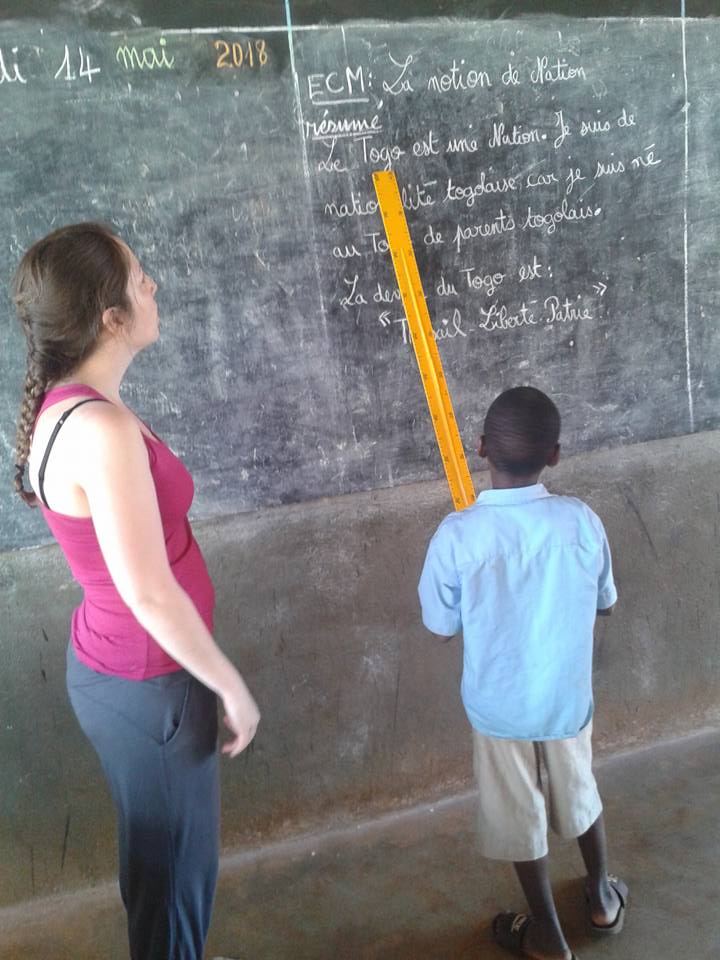 di 14 mai 2018
ECM: La notion de Nation
résumé
Le Togo est une Nation. Je suis de
nationalité togolaise, car je suis né
au To de parents togolais.
La dev du Togo est:
« T ail - Liberté - Patrie »